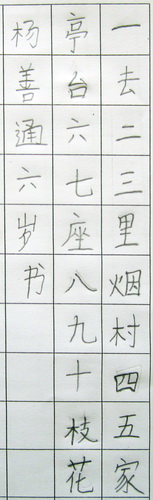 一去二三里烟村四五家
亭台六七座八九十枝花
杨善通六岁书